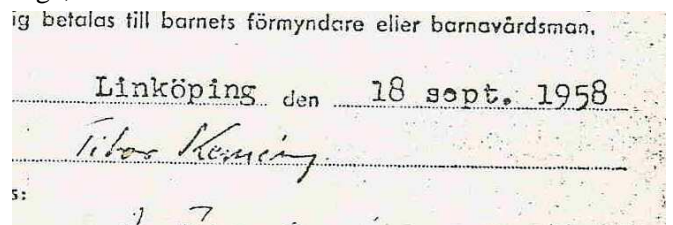 ig betalas till barnets förmyndare eller barnavårdsman.
Linköping den 18 sept. 1958
Tibor
s: